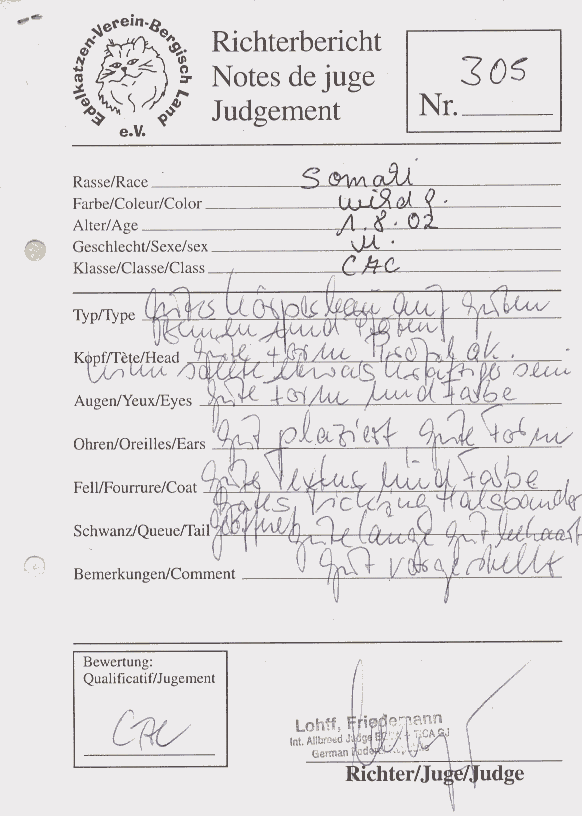 Edelkatzen-Verein-Bergisch Land
e.V.
Richterbericht
Notes de juge
Judgement
Nr. 305
Rasse/Race Somali
Farbe/Coleur/Color wildf.
Alter/Age 1.8.02
Geschlecht/Sexe/sex M.
Klasse/Classe/Class CAC
Typ/Type gutes Körperbau auf guten
Beinen und Pfoten
Kopf/Tète/Head gute Form Profil ok.
Kinn sollte etwas kräftiger sein
Augen/Yeux/Eyes gute Form und Farbe
Ohren/Oreilles/Ears gut plaziert gute Form
Fell/Fourrure/Coat gute Textur und Farbe
gutes Ticking Halsbänder
geöffnet
Schwanz/Queue/Tail gute Länge gut behaart
Bemerkungen/Comment gut vorgestellt
Bewertung:
Qualificatif/Jugement
CAC
Lohff, Friedemann
Int. Allbreed Judge
German
Richter/Juge/Judge